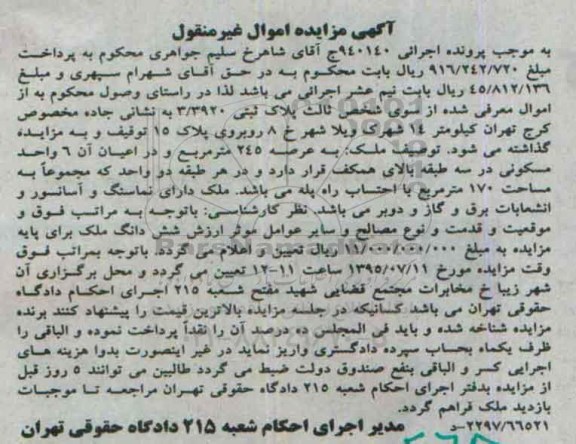 آگهی مزایده اموال غیرمنقول
به موجب پرونده اجرائی ۹۴۰۱۴۰ج آقای شاهرخ سلیم جواهری محکوم به پرداخت
مبلغ ۹۱۶/۲۴۲/۷۲۰ ریال بابت محکوم به در حق آقای شهرام سپهری و مبلغ
۴۵/۸۱۲/۱۳۶ ریال بابت نیم عشر اجرائی می باشد لذا در راستای وصول محکوم به از
اموال معرفی شده از سوی شخص ثالث پلاک ثبتی ۳/۳۹۲۰ به نشانی جاده مخصوص
کرج تهران کیلومتر ۱۴ شهرک ویلا شهر خ ۸ روبروی پلاک ۱۵ توقیف و به مزایده
گذاشته می شود. توصیف ملک: به عرصه ۲۴۵ مترمربع و در اعیان آن ۶ واحد
مسکونی در سه طبقه بالای همکف قرار دارد و در هر طبقه دو واحد که مجموعاً به
مساحت ۱۷۰ مترمربع با احتساب راه پله می باشد. ملک دارای نماسنگ و آسانور و
انشعابات برق و گاز و دوبر می باشد. نظر کارشناسی: باتوجه به مراتب فوق و
موقعیت و قدمت و نوع مصالح و سایر عوامل موثر ارزش شش دانگ ملک برای پایه
مزایده به مبلغ ۱۱/۰۰۰/۰۰۰/۰۰۰ ریال تعیین و اعلام می گردد. باتوجه بمراتب فوق
وقت مزایده مورخ ۱۳۹۵/۰۷/۱۱ ساعت ۱۱-۱۲ تعیین می گردد و محل برگزاری آن
شهر زیبا خ مخابرات مجتمع قضایی شهید مفتح شعبه ۲۱۵ اجرای احکام دادگاه
حقوقی تهران می باشد کسانیکه در جلسه مزایده بالاترین قیمت را پیشنهاد کنند برنده
مزایده شناخته شده و باید فی المجلس ده درصد آن را نقداً پرداخت نموده و الباقی را
ظرف یکماه بحساب سپرده دادگستری واریز نماید در غیر اینصورت بدوا هزینه های
اجرایی کسر و الباقی بنفع صندوق دولت ضبط می گردد طالبین می توانند ۵ روز قبل
از مزایده بدفتر اجرای احکام شعبه ۲۱۵ دادگاه حقوقی تهران مراجعه تا موجبات
بازدید ملک فراهم گردد.
۲۲۹۷/۶۶۵۲۱-د مدیر اجرای احکام شعبه ۲۱۵ دادگاه حقوقی تهران